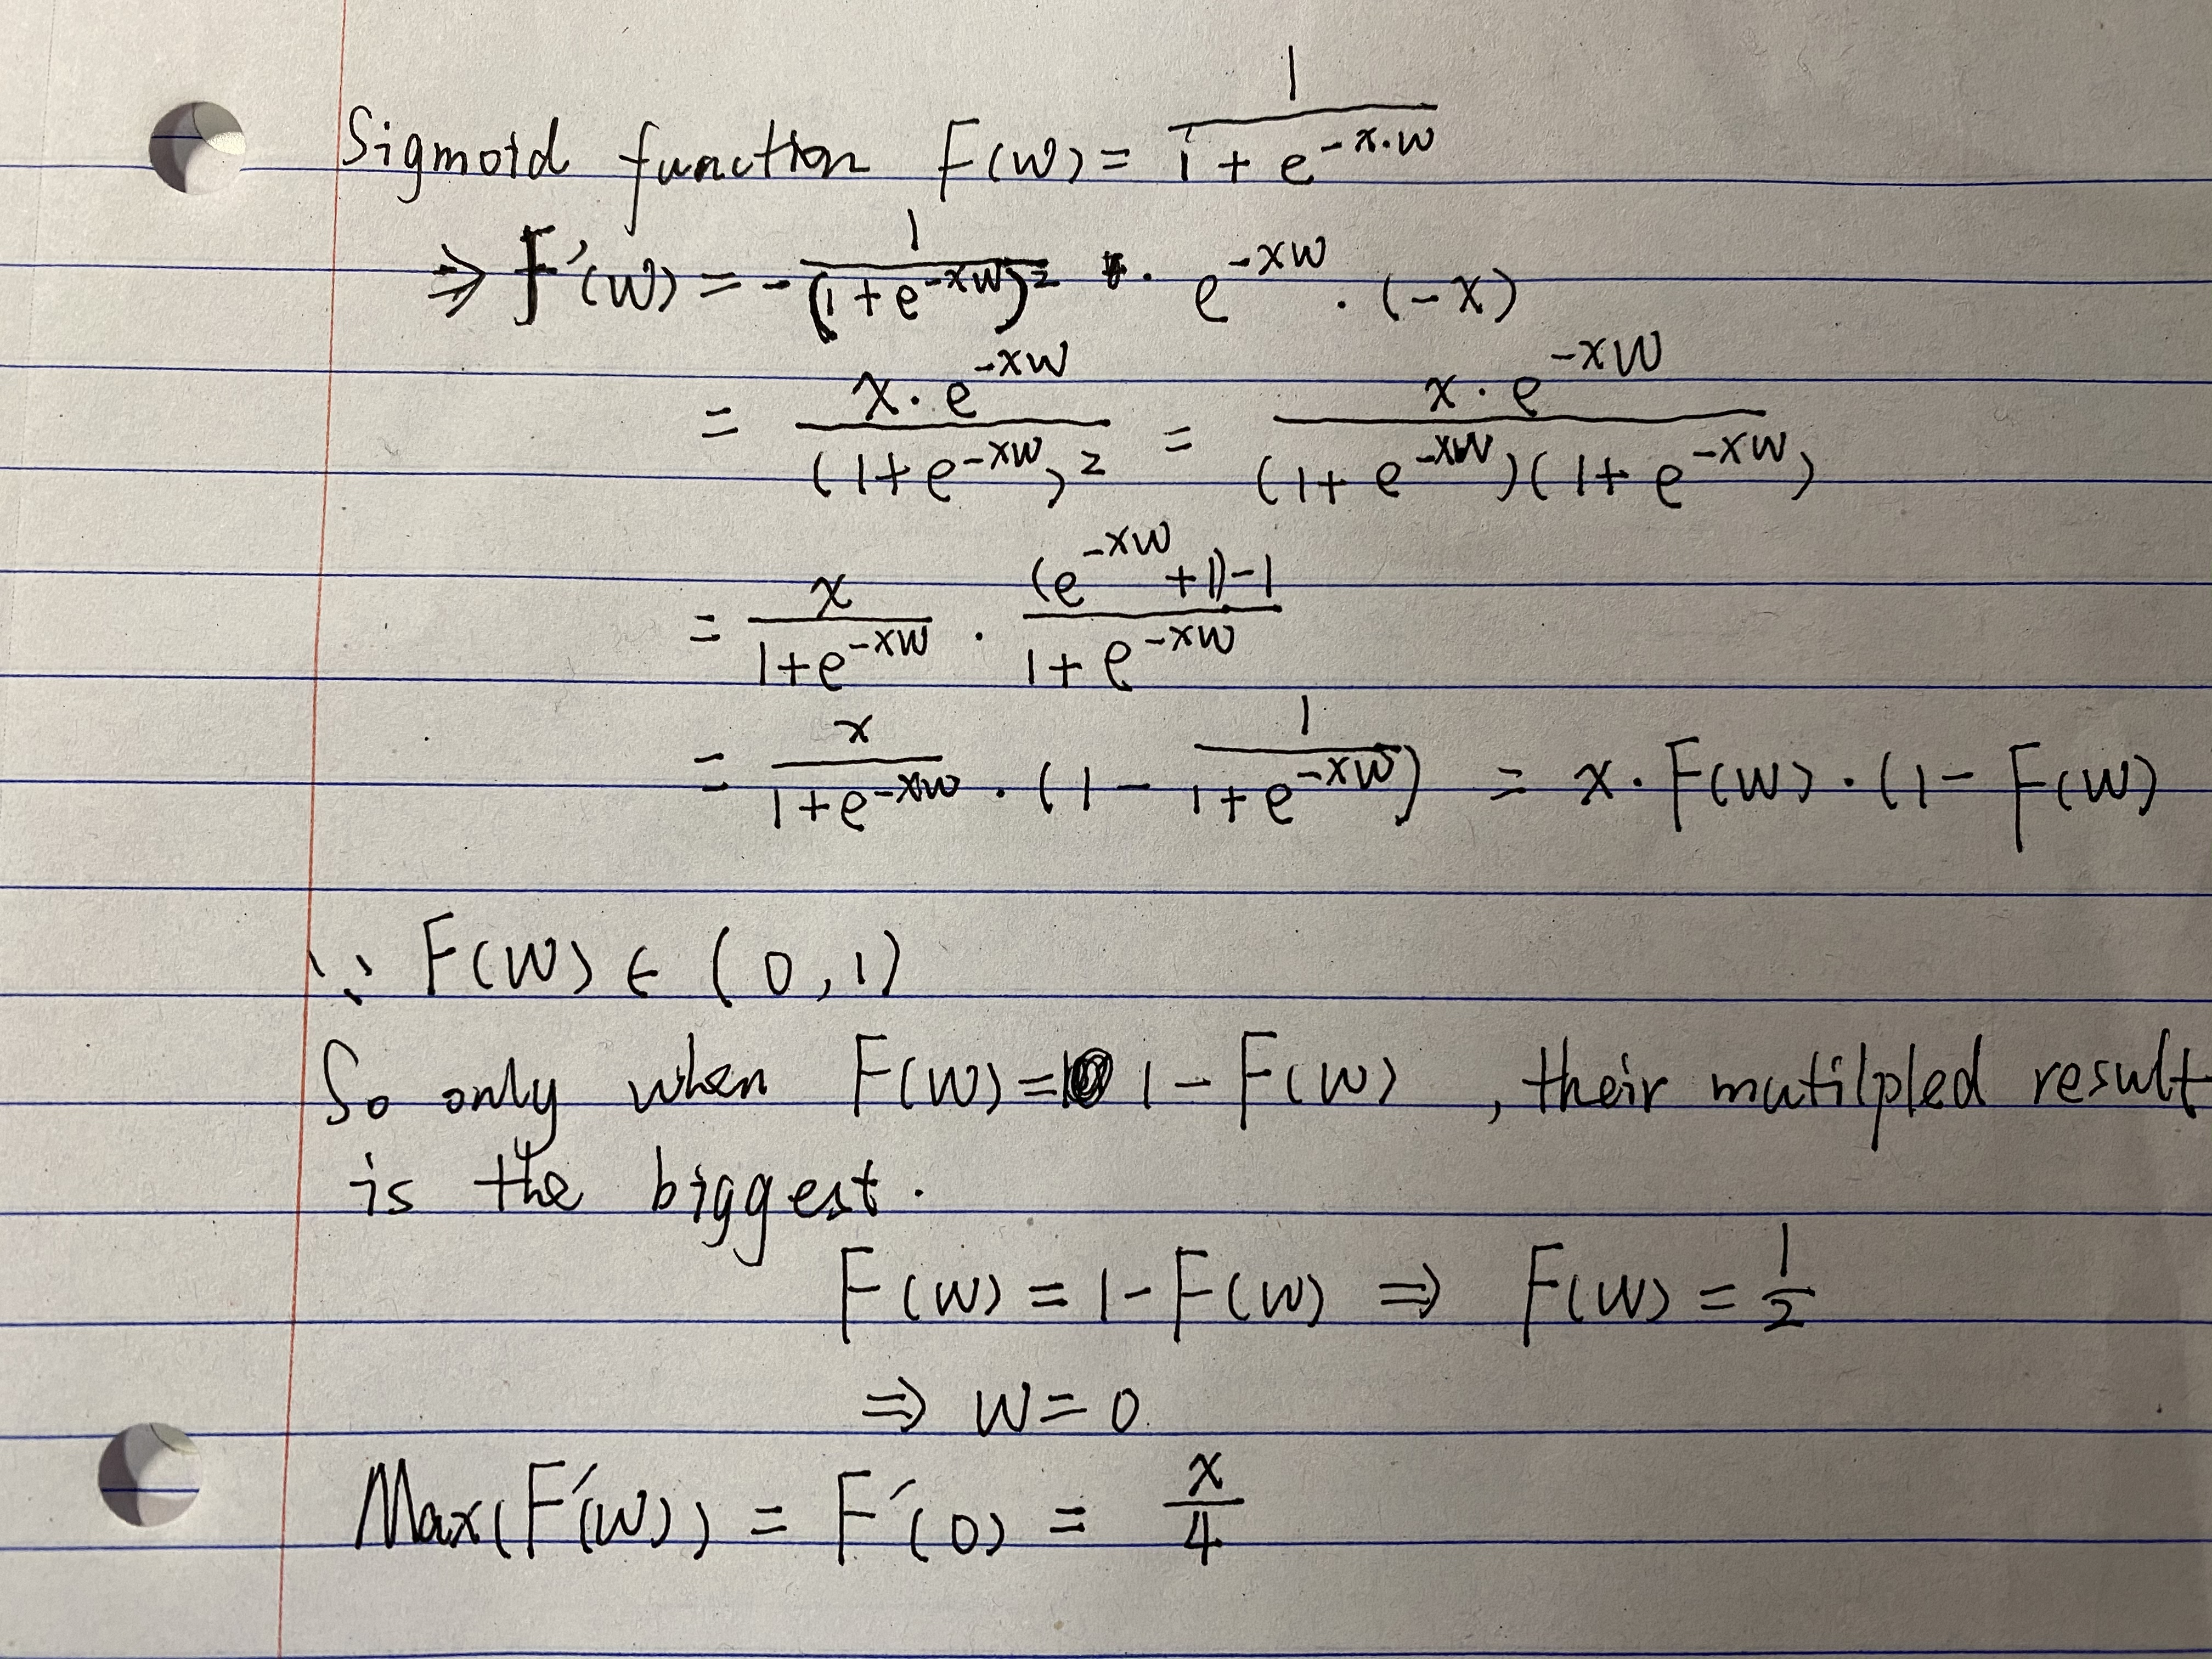 Sigmoid function F(w) = 1 / (1 + e^(-x·w))
⇒ F'(w) = - 1 / (1 + e^(-xw))² · e^(-xw) · (-x)
= x·e^(-xw) / (1 + e^(-xw))² = x·e^(-xw) / (1 + e^(-xw))(1 + e^(-xw))
= x / (1 + e^(-xw)) · ((e^(-xw) + 1) - 1) / (1 + e^(-xw))
= x / (1 + e^(-xw)) · (1 - 1 / (1 + e^(-xw))) = x · F(w) · (1 - F(w)
∵ F(w) ∈ (0, 1)
So only when F(w) = 1 - F(w) , their mutilpled result
is the biggest.
F(w) = 1 - F(w) ⇒ F(w) = 1/2
⇒ w = 0
Max(F'(w)) = F'(0) = x/4